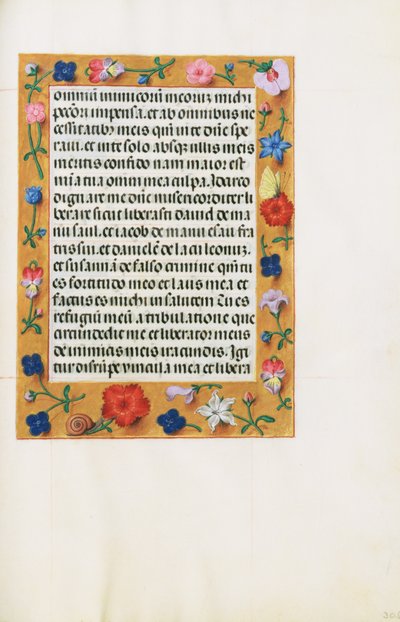 omniũ inimicorũ meoruʒ michi
peccõrʒ impensa. et ab omnibus ne
cessitatibʒ meis qm̃ in te dñe spe
raui. et in te solo absqʒ ullis meis
meritis confido nam maior est
mĩa tua omni mea culpa. Idarco
dignare me dñe misericorditer li
berare sicut liberasti dauid de ma
nu saul. et iacob de manu esau fra
tris sui. et danielẽ de lacu leonuʒ.
et susannã de falso crimine qm̃ tu
es fortitudo meo et laus mea et
factus es michi in salutem Tu es
refugiũ meũ a tribulatione que
circundedit me et liberatorʒ meus
de inimicis meis iracundis. Igi
tur disrũpe vincula mea et libera